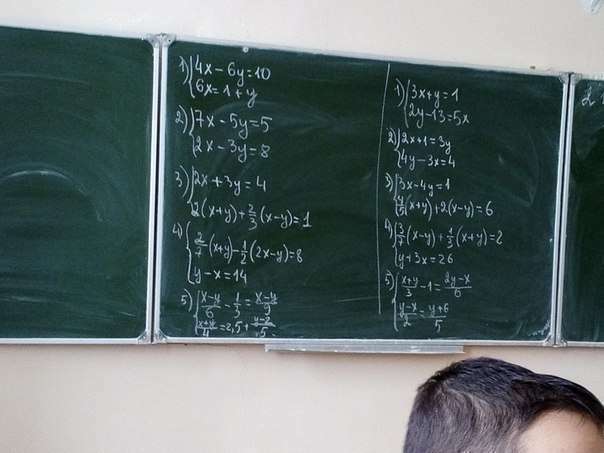 1) { 4x - 6y = 10
6x = 1 + y
2) { 7x - 5y = 5
2x - 3y = 8
3) { 2x + 3y = 4
2(x+y) + 2/3 (x-y) = 1
4) { 2/7 (x+y) - 1/2 (2x-y) = 8
y - x = 14
5) { (x-y)/6 - 1/3 = (x-y)/9
(x+y)/4 = 2,5 + (y-2)/5
1) { 3x + y = 1
2y - 13 = 5x
2) { 2x + 1 = 3y
4y - 3x = 4
3) { 3x - 4y = 1
4/5 (x+y) + 2(x-y) = 6
4) { 3/7 (x-y) + 1/3 (x+y) = 2
y + 3x = 26
5) { (x+y)/3 - 1 = (2y-x)/6
(y-x)/2 = (y+6)/5